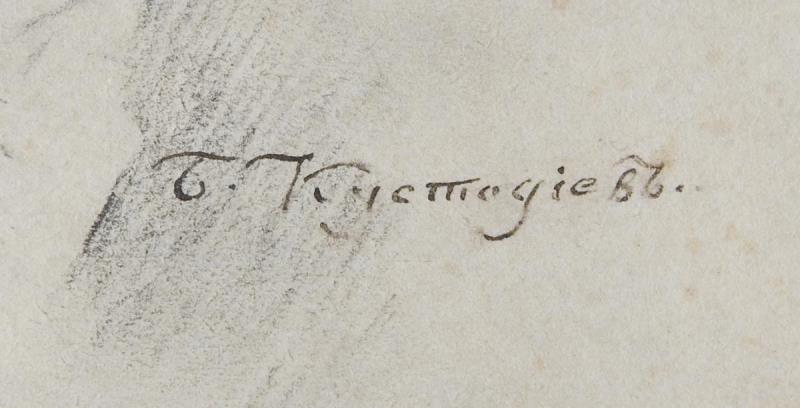 Б. Кустодіевъ.